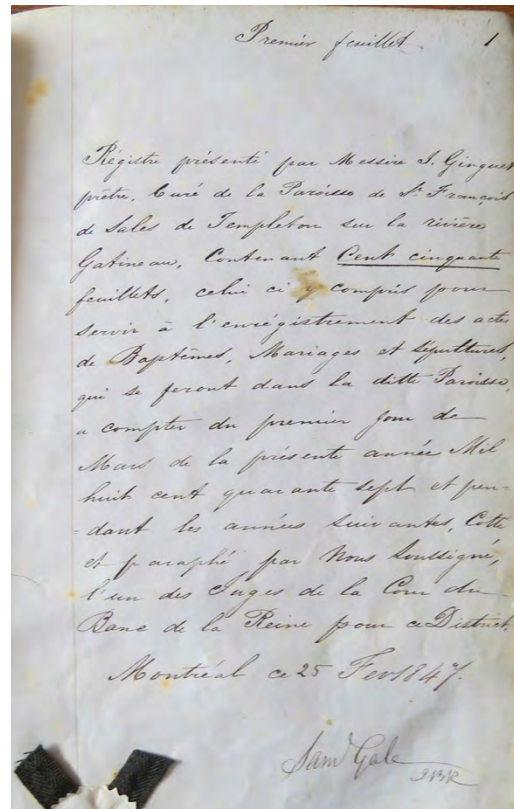 Premier feuillet 1
Régistre présenté par Messire J. Ginguet
prêtre, Curé de la Paroisse de St. François
de Sales de Templeton sur la rivière
Gatineau, Contenant Cent cinquante
feuillets, celui ci y compris pour
servir à l'enrégistrement des actes
de Baptêmes, Mariages et Sépultures,
qui se feront dans la ditte Paroisse,
a compter du premier jour de
Mars de la présente année Mil
huit cent quarante sept et pen-
-dant les années suivantes, Cotté
et paraphé par Nous Soussigné,
l'un des Juges de la Cour du
Banc de la Reine pour ce District.
Montréal ce 25 Fev 1847.
Saml Gale